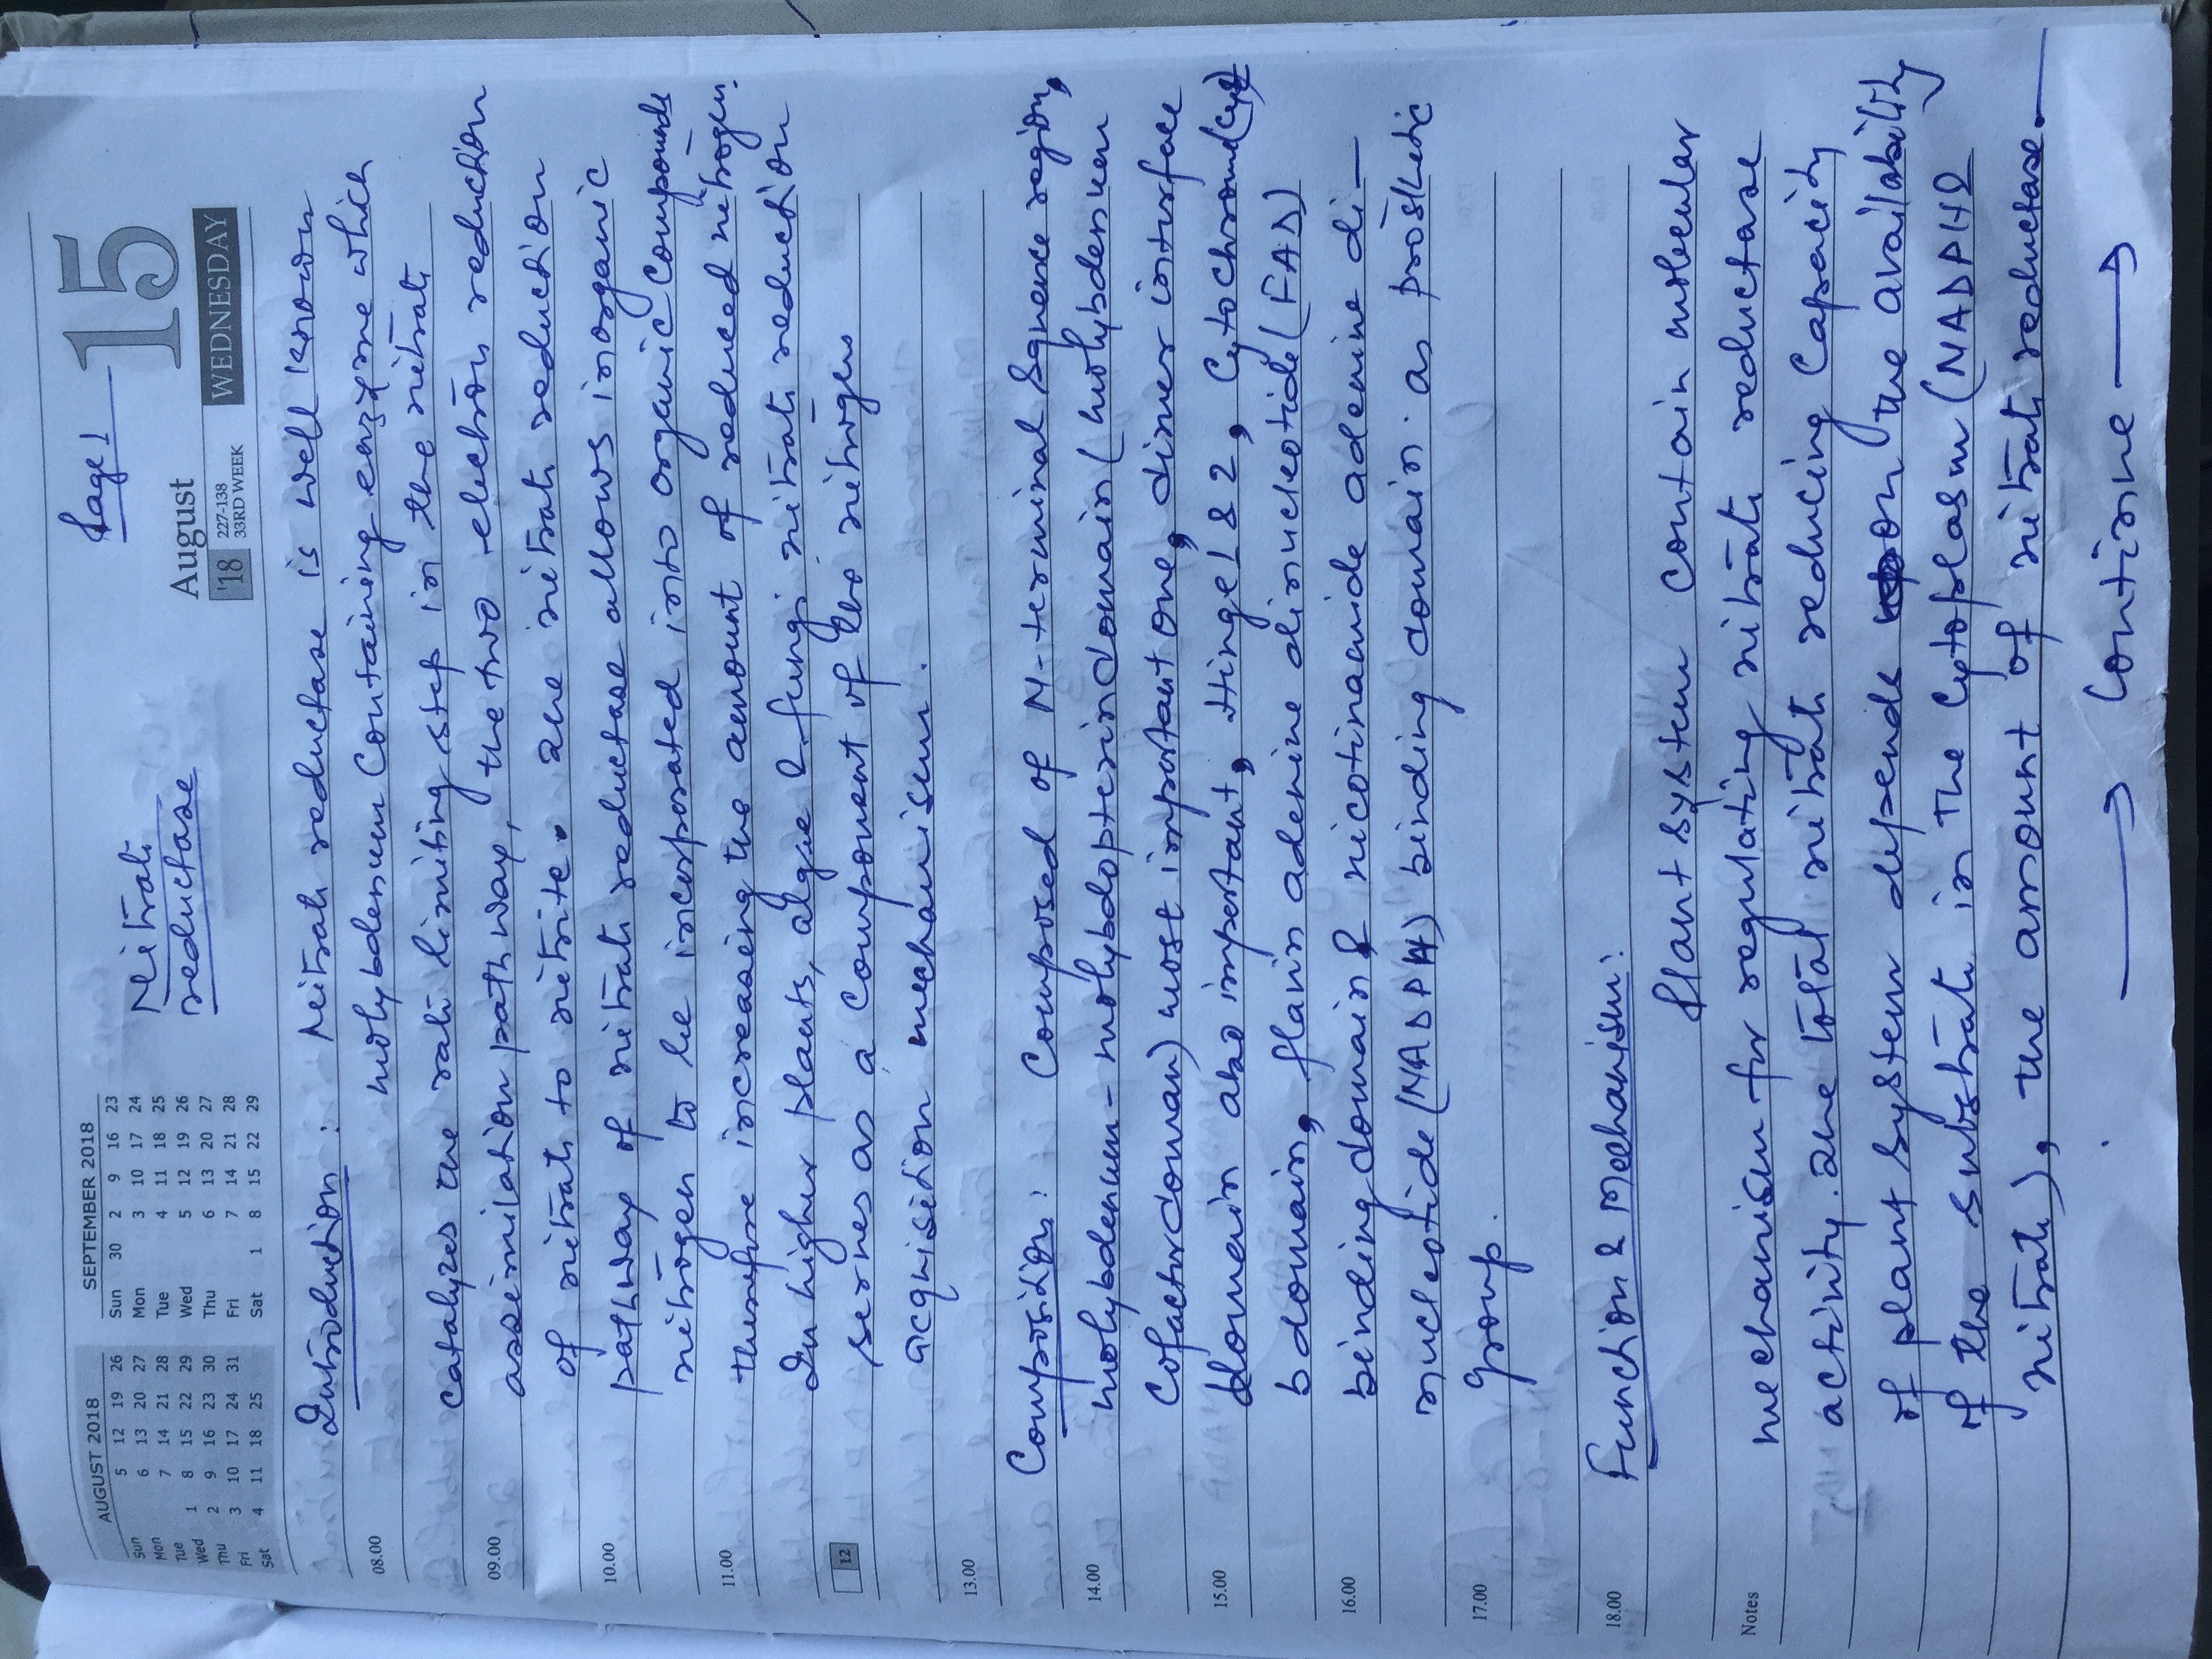 Page 1
AUGUST 2018
Sun 5 12 19 26
Mon 6 13 20 27
Tue 7 14 21 28
Wed 1 8 15 22 29
Thu 2 9 16 23 30
Fri 3 10 17 24 31
Sat 4 11 18 25
SEPTEMBER 2018
Sun 30 2 9 16 23
Mon 3 10 17 24
Tue 4 11 18 25
Wed 5 12 19 26
Thu 6 13 20 27
Fri 7 14 21 28
Sat 1 8 15 22 29
Nitrate
reductase
August
'18 227-138
33RD WEEK
15
WEDNESDAY
Introduction: Nitrate reductase is well known
08.00 molybdenum containing enzyme which
catalyzes the rate limiting step in the nitrate
09.00 assimilation pathway, the two electron reduction
of nitrate to nitrite. The nitrate reduction
10.00 pathway of nitrate reductase allows inorganic
nitrogen to be incorporated into organic compounds
11.00 therefore increasing the amount of reduced nitrogen.
In higher plants, algae & fungi nitrate reduction
12 serves as a component of the nitrogen
acquisition mechanism.
13.00
Composition: Composed of N-terminal Sqnence region,
14.00 molybdenum-molybdopterin domain (molybdenum
cofactor domain) most important one, dimer interface
15.00 domain also important, Hinge 1 & 2, Cytochrome (Cyt)
b domain, flavin adenine dinucleotide (FAD)
16.00 binding domain & nicotinamide adenine di-
nucleotide (NADPH) binding domain as prosthetic
17.00 group.
18.00 Function & Mechanism:
Plant system contain molecular
Notes mechanism for regulating nitrate reductase
activity. The total nitrate reducing capacity
of plant system depends on the availability
of the substrate in the cytoplasm (NADPH &
nitrate), the amount of nitrate reductase.
→ Contione →